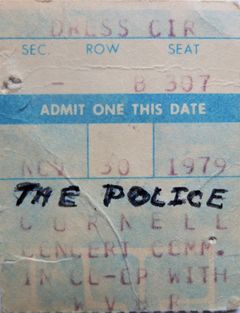 DRESS CIR
SEC. ROW SEAT
- B 307
ADMIT ONE THIS DATE
NOV 30 1979
THE POLICE
CORNELL
CONCERT COMM.
IN CO-OP WITH
W V B R